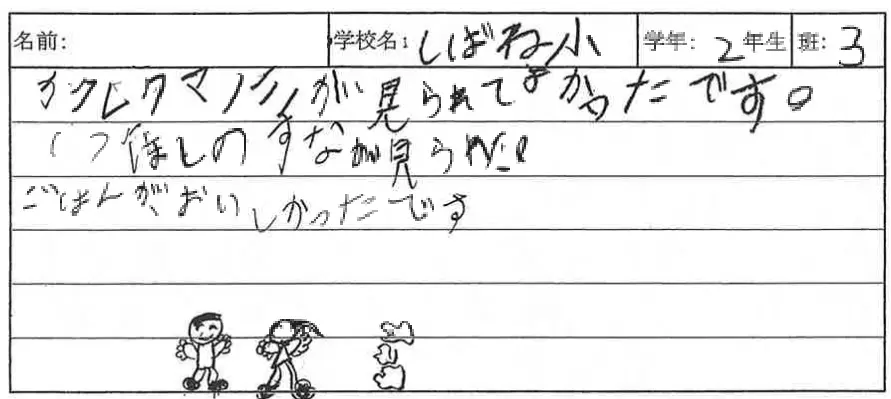 名前: 学校名: しばね小 学年: 2年生 班: 3
カクレクマノミが見られてよかったです。
しのすなが見られ
ごはんがおいしかったです